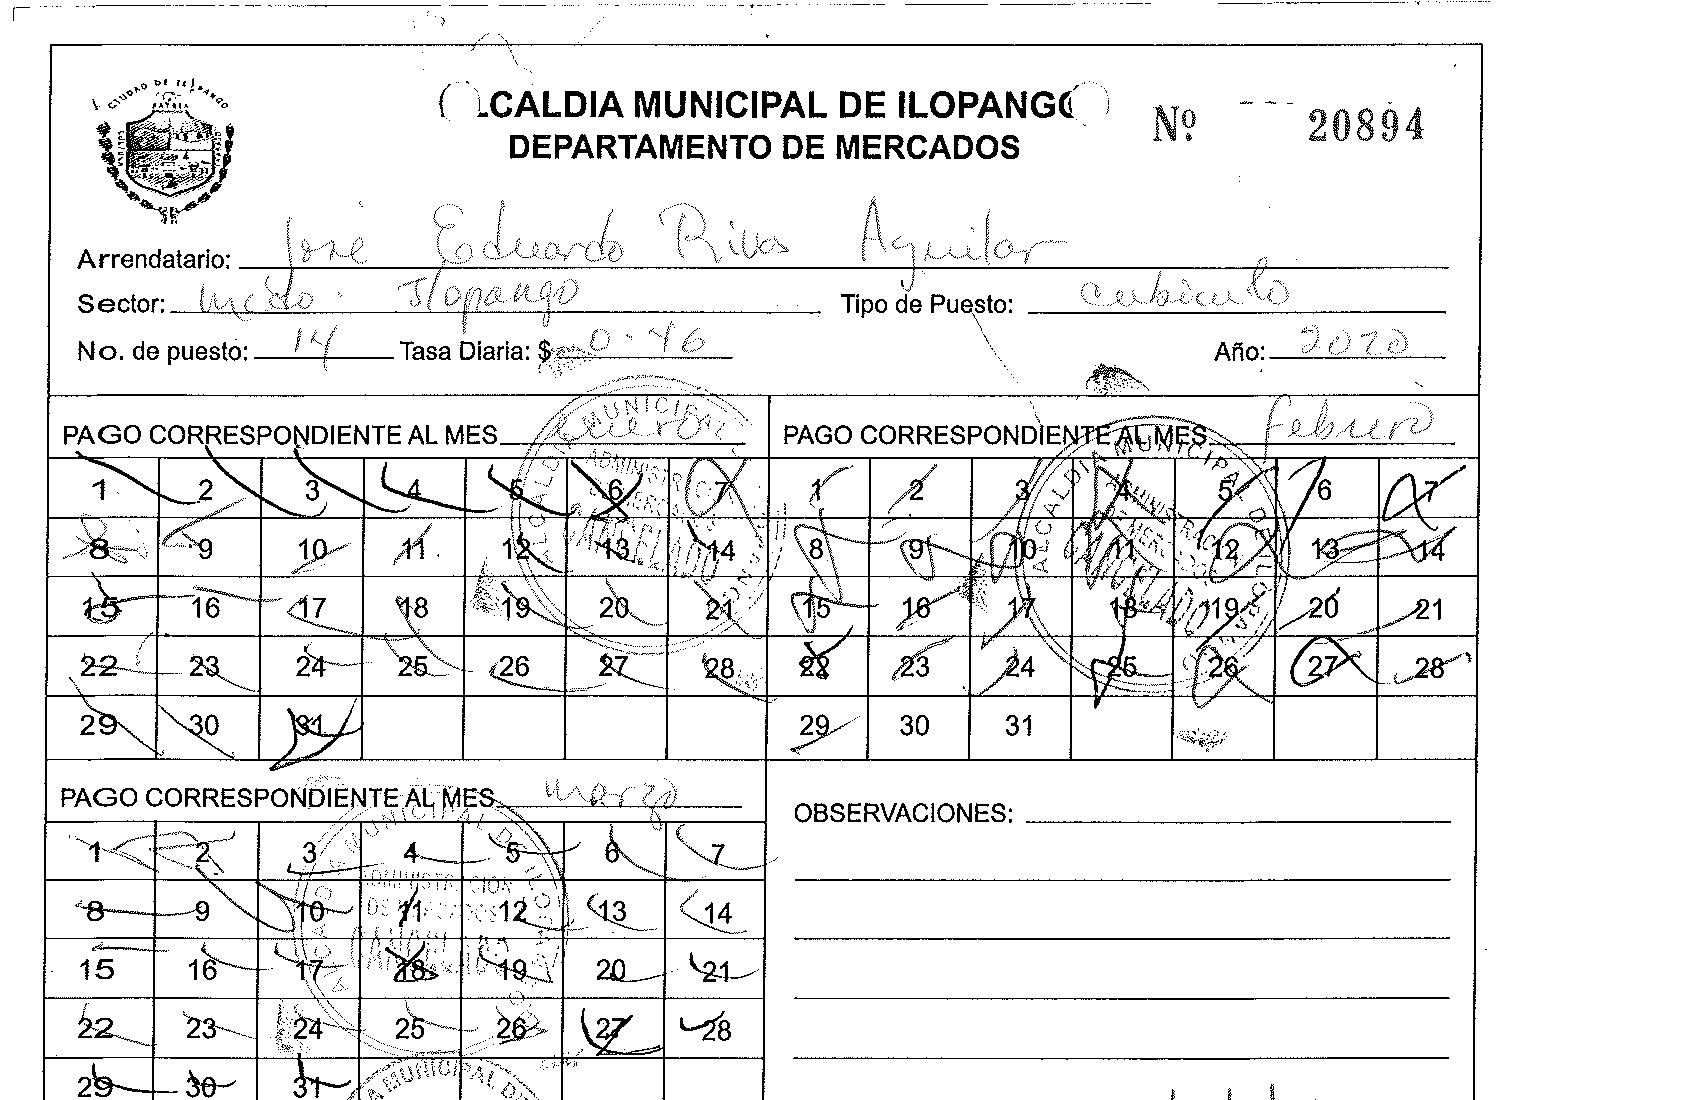 CIUDAD DE ILOPANGO
PATRIA
ALCALDIA MUNICIPAL DE ILOPANGO
DEPARTAMENTO DE MERCADOS
Nº 20894
Arrendatario: José Eduardo Rivas Aguilar
Sector: Mcdo. Ilopango Tipo de Puesto: cubiculo
No. de puesto: 14 Tasa Diaria: $ 0.46 Año: 2020
PAGO CORRESPONDIENTE AL MES enero
1 2 3 4 5 6 7
8 9 10 11 12 13 14
15 16 17 18 19 20 21
22 23 24 25 26 27 28
29 30 31
ALCALDIA MUNICIPAL
CANCELADO
PAGO CORRESPONDIENTE AL MES febrero
1 2 3 4 5 6 7
8 9 10 11 12 13 14
15 16 17 18 19 20 21
22 23 24 25 26 27 28
29 30 31
ALCALDIA MUNICIPAL DE
CANCELADO
PAGO CORRESPONDIENTE AL MES marzo
1 2 3 4 5 6 7
8 9 10 11 12 13 14
15 16 17 18 19 20 21
22 23 24 25 26 27 28
29 30 31
ALCALDIA MUNICIPAL DE
ADMINISTRACION
DE MERCADOS
CANCELADO
MUNICIPAL DE
OBSERVACIONES: